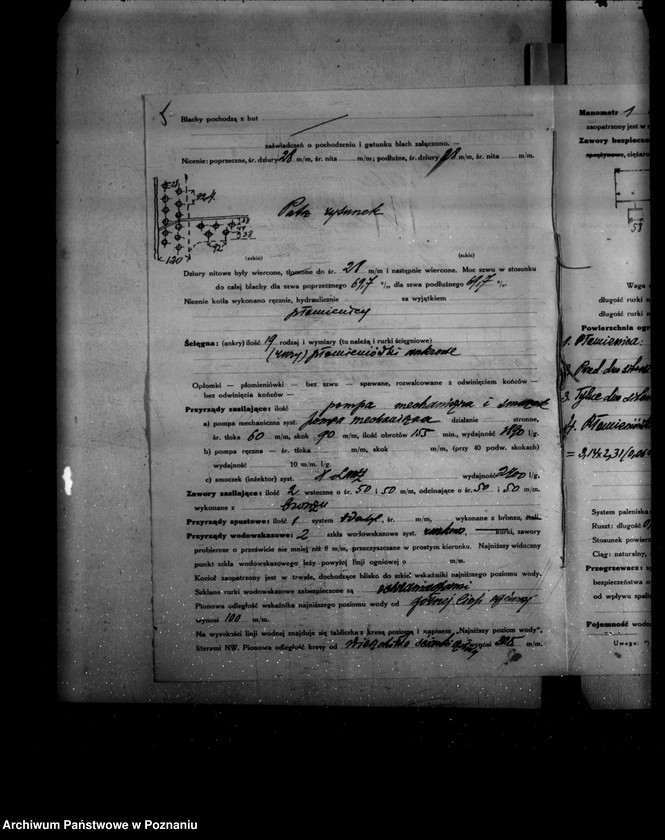 5
Blachy pochodzą z hut
zaświadczeń o pochodzeniu i gatunku blach załączono. —
Nicenie: poprzeczne, śr. dziury 28 m/m, śr. nita m/m; podłużne, śr. dziury 28 m/m, śr. nita m/m.
Patrz rysunek
120
(szkic) (szkic)
Dziury nitowe były wiercone, tłoczone do śr. 21 m/m i następnie wiercone. Moc szwu w stosunku
do całej blachy dla szwu poprzecznego 69,7 % dla szwu podłużnego 69,7 %
Nicenie kotła wykonano ręcznie, hydraulicznie za wyjątkiem
płomienicy
Ścięgna: (ankry) ilość 19 rodzaj i wymiary (tu należą i rurki ścięgniowe)
(rury) płomieniówki ankrowe
Opłomki — płomieniówki — bez szwu — spawane, rozwalcowane z odwinięciem końców —
bez odwinięcia końców —
Przyrządy zasilające: ilość pompa mechaniczna i smoczek
a) pompa mechaniczna syst. pompa mechaniczna działanie stronne,
śr. tłoka 60 m/m, skok 90 m/m, ilość obrotów 155 min., wydajność l/g.
b) pompa ręczna — śr. tłoka m/m, skok m/m, (przy 40 podw. skokach)
wydajność 10 m/m. l/g.
c) smoczek (inżektor) syst. wydajność 2400 l/g.
Zawory zasilające: ilość 2 wsteczne o śr. 50 i 50 m/m, odcinające o śr. 50 i 50 m/m.
wykonane z bronzu
Przyrządy spustowe: ilość 1 system śr. m/m, wykonane z bronzu, stali
Przyrządy wodowskazowe: 2 szkła wodowskazowe syst. kurki, zawory
probiercze o prześwicie nie mniej niż 8 m/m, przeczyszczane w prostym kierunku. Najniższy widoczny
punkt szkła wodowskazowego leży powyżej linji ogniowej o m/m.
Kocioł zaopatrzony jest w trwałe, dochodzące blisko do szkieł wskaźniki najniższego poziomu wody.
Szklane rurki wodowskazowe zabezpieczone są ochraniaczami
Pionowa odległość wskaźnika najniższego poziomu wody od górnej linji ogniowej
wynosi 100 m/m.
Na wysokości linji wodnej znajduje się tabliczka z kresą poziomą i napisem „Najniższy poziom wody",
literami NW. Pionowa odległość kresy od wierzchołka wynosi m/m.
Manometr 1
zaopatrzony jest w
Zawory bezpiecze
sprężynowe, ciężaro
58
Waga
długość rurki n
długość rurki n
Powierzchnia ogr
1. Płomienica:
3. Tylne dno
4. Płomieniówki
System paleniska
Ruszt: długość
Stosunek powierz
Ciąg: naturalny,
Przegrzewacz: sy
bezpieczeństwa n
od wpływu spalin
Pojemność wodn
Uwaga: *)
Archiwum Państwowe w Poznaniu